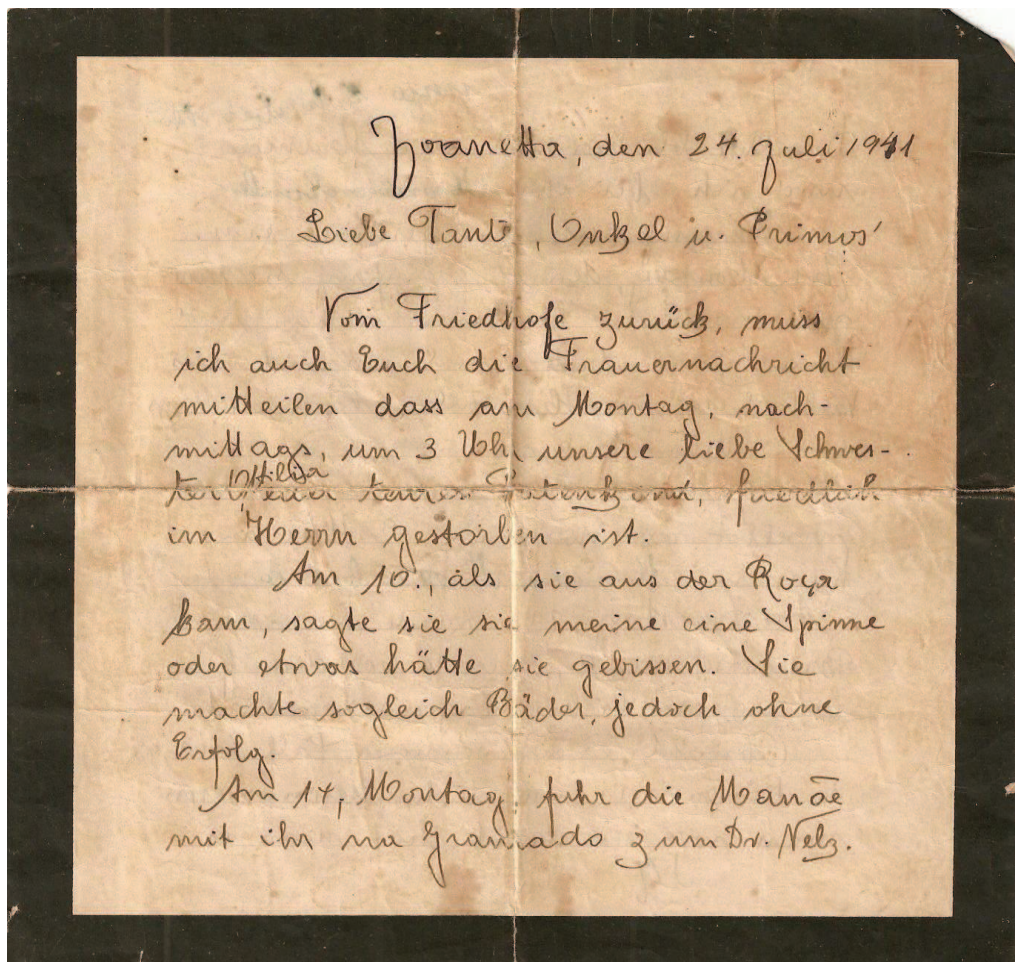 Joanetta, den 24. Juli 1941
Liebe Tante, Onkel u. Primos
Vom Friedhofe zurück, muss
ich auch Euch die Trauernachricht
mitteilen dass am Montag, nach-
mittags, um 3 Uhr unsere liebe Schwes-
ter Ottilija euer teures Patenkind, friedlich
im Herrn gestorben ist.
Am 10., als sie aus der Roça
kam, sagte sie sie meine eine Spinne
oder etwas hätte sie gebissen. Sie
machte sogleich Bäder, jedoch ohne
Erfolg.
Am 14, Montag fuhr die Manãe
mit ihr na Gramado zum Dr. Nelz.